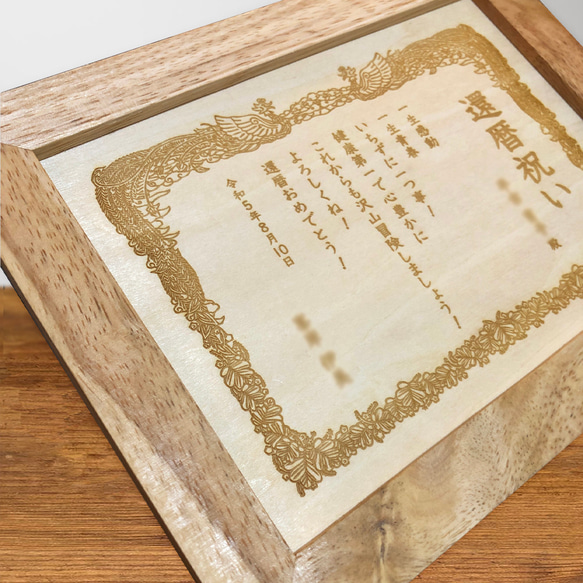 還暦祝い
殿
一生感動
一生青春
いちずに一つ事！
健康第一で心豊かに
これからも沢山冒険しましょう！
よろしくね！
還暦おめでとう！
令和5年8月10日